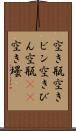 空き瓶空き
ビン空きび
ん空瓶
空き壜